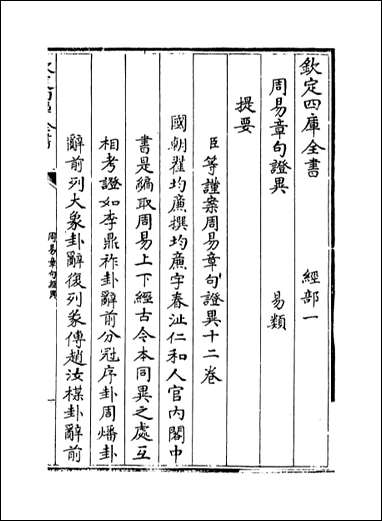 欽定四庫全書　經部一
周易章句證異　易類
提要
臣等謹案周易章句證異十二卷
國朝翟均廉撰均廉字春沚仁和人官內閣中
書是編取周易上下經古今本同異之處互
相考證如李鼎祚卦辭前分冠序卦周燔卦
辭前列大象卦辭復列彖傳趙汝楳卦辭前
周易章句證異